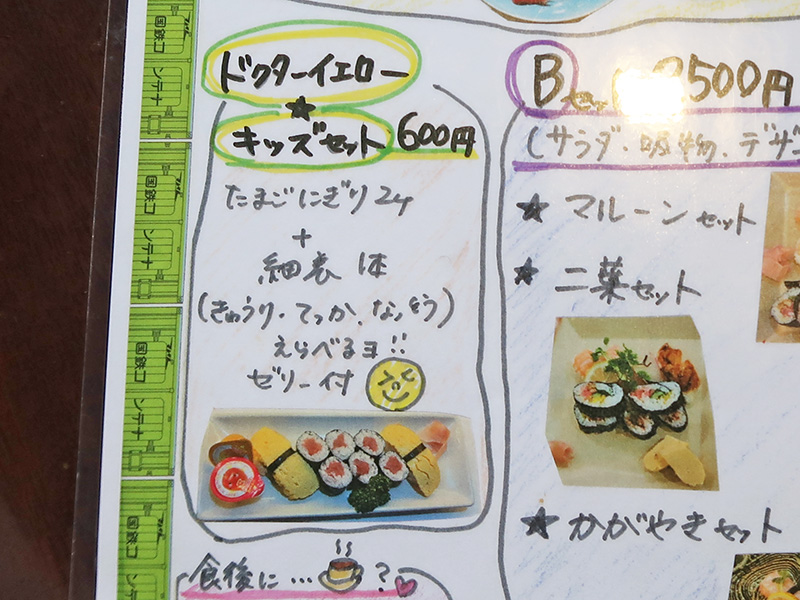 ドクターイエロー
★
キッズセット 600円
たまごにぎり2ヶ
+
細巻 1本
(きゅうり・てっか、なっとう)
えらべるヨ!!
ゼリー付
食後に…?
Bセット 2500円
(サラダ・吸物、デザ
★ マルーンセット
★ 二葉セット
★ かがやきセット
国鉄コンテナ
国鉄コンテナ
国鉄コンテナ
国鉄コンテナ